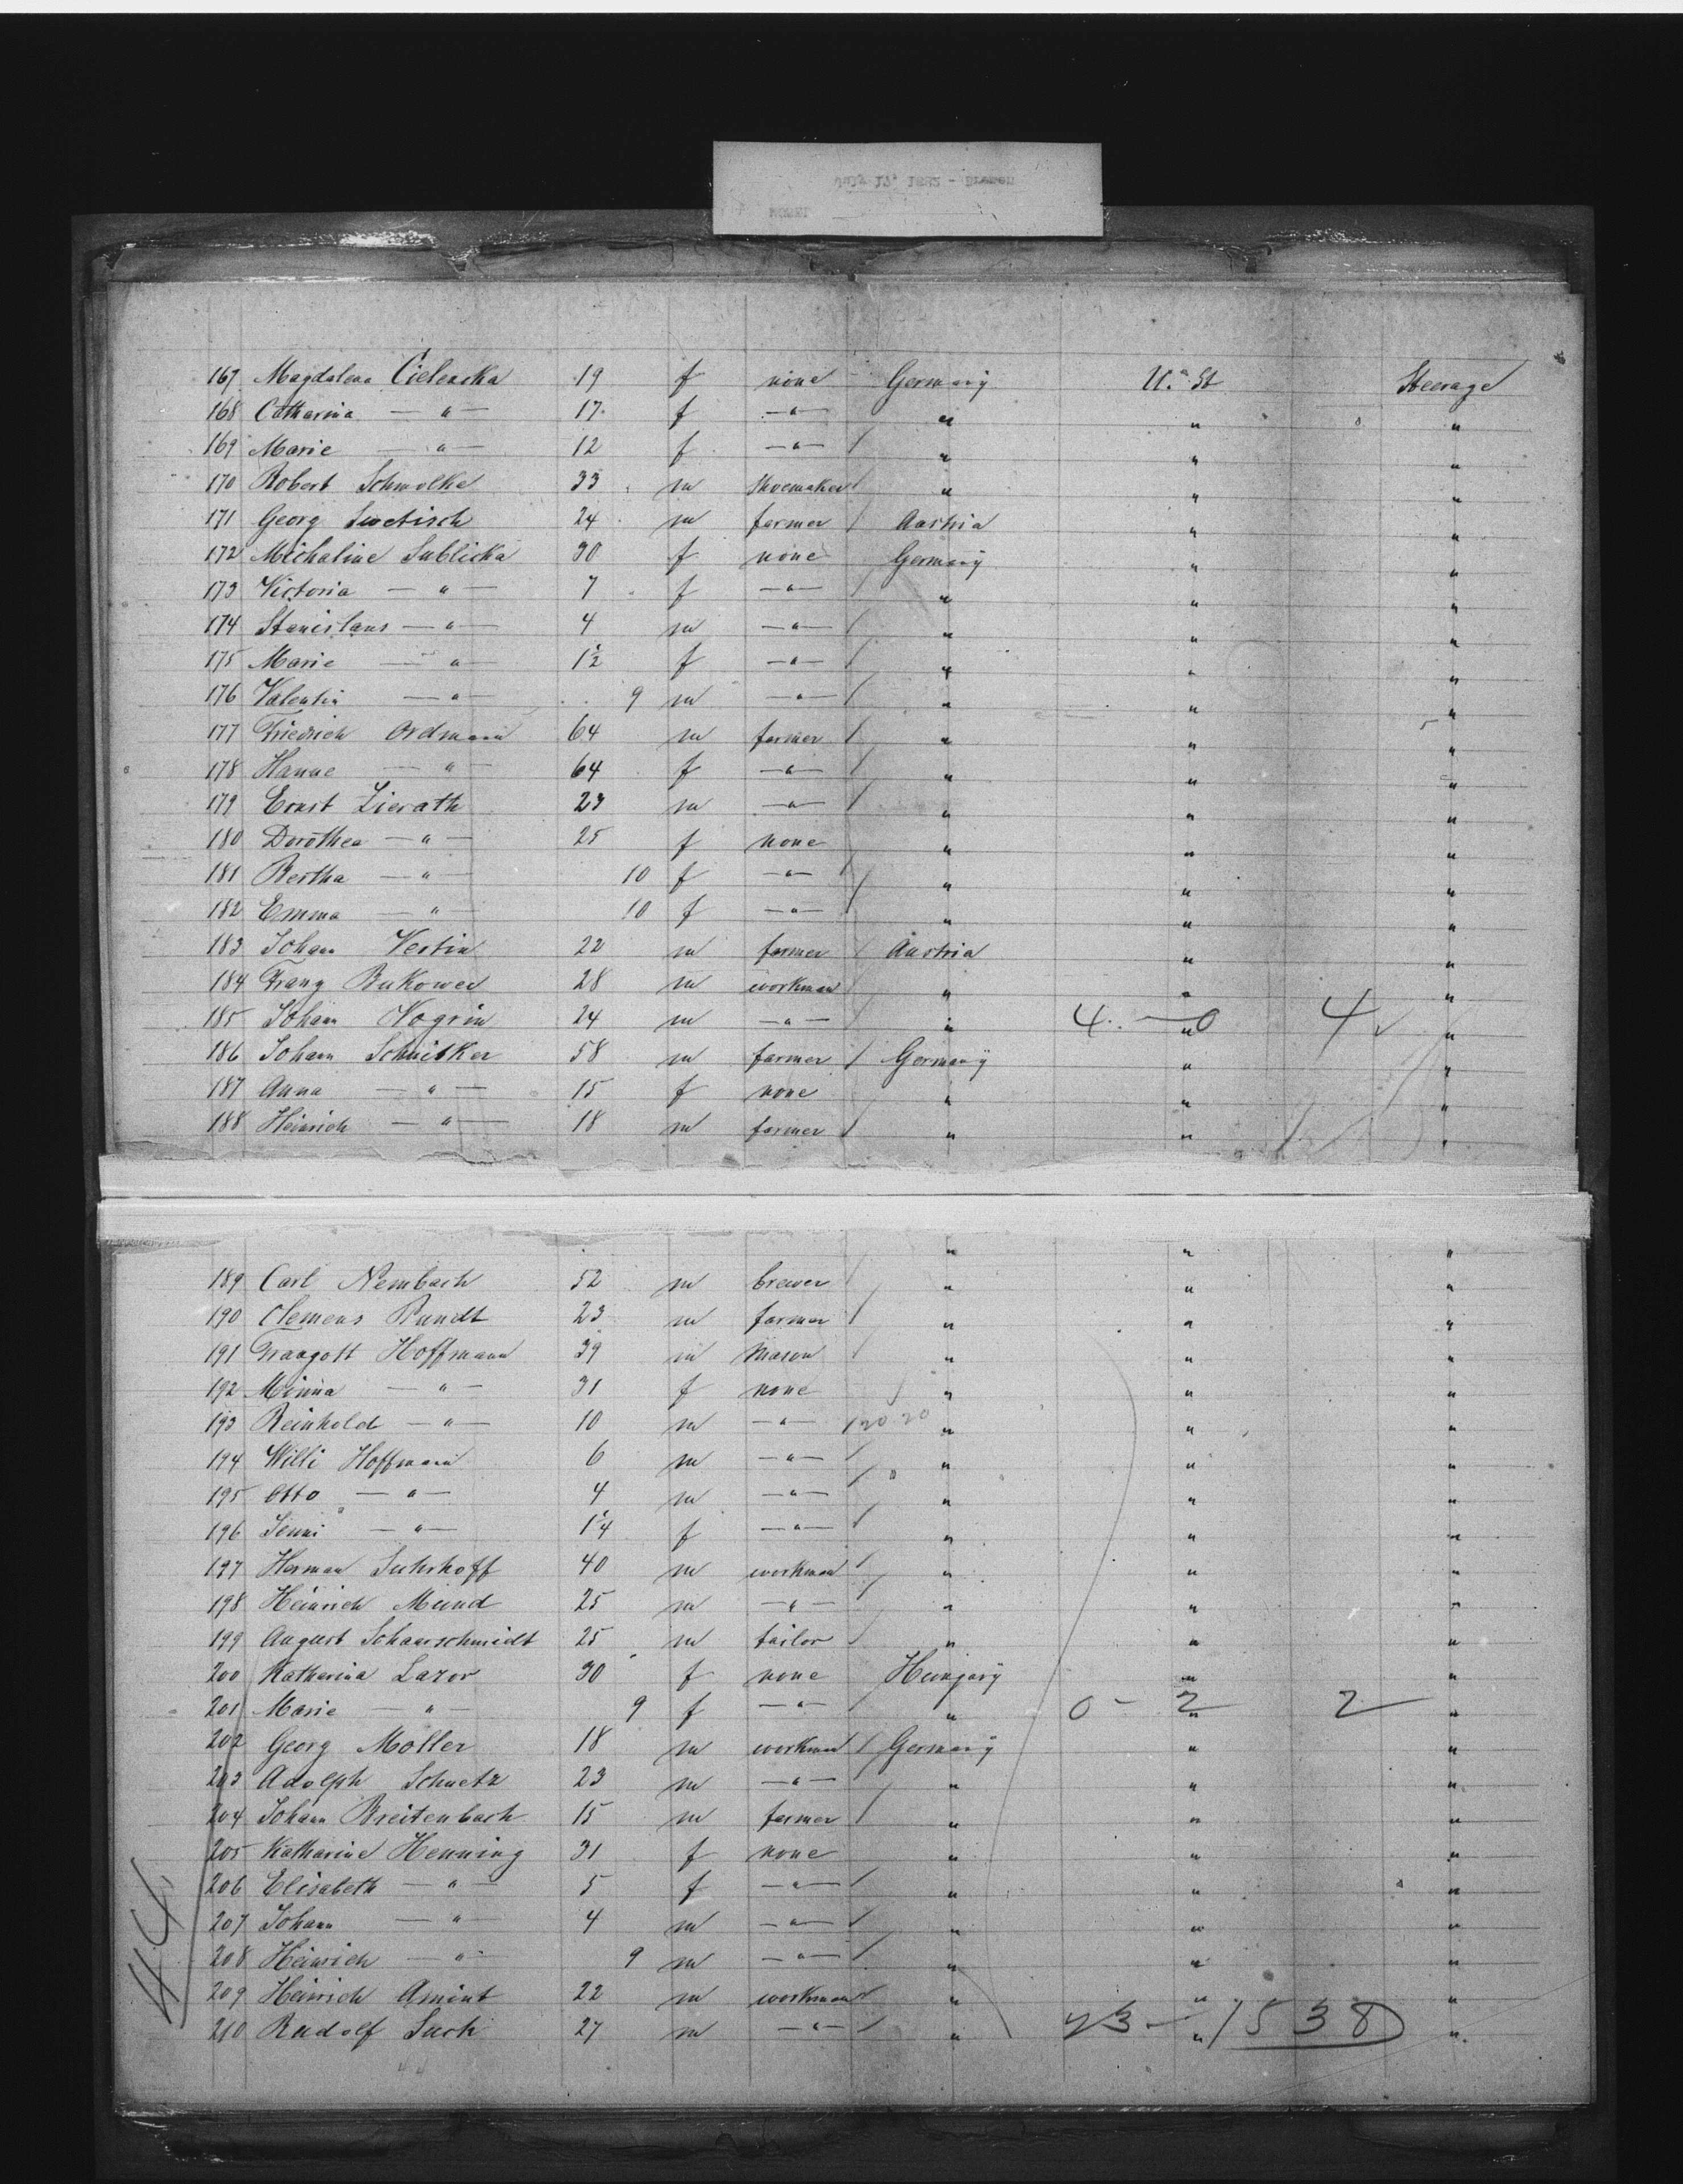 July 17, 1882 - Bremen
167 Magdalena Cielencka 19 f none Germany U. St Steerage
168 Catharina — " — 17 f — " — " " "
169 Marie — " — 12 f — " — / " " "
170 Robert Schmolke 33 m Shoemaker / " " "
171 Georg Swetisch 24 m farmer / Austria " "
172 Michaline Sublicka 30 f none Germany " "
173 Victoria — " — 7 f — " — / " " "
174 Stanislaus — " — 4 m — " — / " " "
175 Marie — " — 1 1/2 f — " — / " " "
176 Valentin — " — 9 m — " — / " " "
177 Friedrich Ordmann 64 m farmer / " " "
178 Hanne — " — 64 f — " — / " " "
179 Ernst Zierath 23 m — " — / " " "
180 Dorothea — " — 25 f none " " "
181 Bertha — " — 10 f — " — / " " "
182 Emma — " — 10 f — " — / " " "
183 Johann Vertin 22 m farmer / Austria " "
184 Franz Bukowec 28 m workman / " " "
185 Johann Kogrin 24 m — " — / " 4 — 0 " 4 "
186 Johann Schnitker 58 m farmer / Germany " "
187 Anna — " — 15 f none " " "
188 Heinrich — " — 18 m farmer / " " "
" " "
189 Carl Nembach 52 m brewer / " " "
190 Clemens Rundt 23 m farmer / " " "
191 Traugott Hoffmann 39 m Mason / " " "
192 Minna — " — 31 f none " " "
193 Reinhold — " — 10 m — " — / 20 20 " " "
194 Willi Hoffmann 6 m — " — / " " "
195 Otto — " — 4 m — " — / " " "
196 Jenni — " — 1 1/4 f — " — / " " "
197 Herman Suhrhoff 40 m workman / " " "
198 Heinrich Mund 25 m — " — / " " "
199 August Schaarschmidt 25 m tailor / " " "
200 Katharina Lazor 30 f none Hungary " "
201 Marie — " — 9 f — " — / " 0 - 2 " 2 "
202 Georg Moller 18 m workman / Germany " "
203 Adolph Schuetz 23 m — " — / " " "
204 Johann Breitenbach 15 m farmer / " " "
205 Katharine Henning 31 f none " " "
206 Elisabeth — " — 5 f — " — / " " "
207 Johann — " — 4 m — " — / " " "
208 Heinrich — " — 9 m — " — / " " "
209 Heinrich Amint 22 m workman / " " "
210 Rudolf Such 27 m — " — / " 23 — " 15 38 "
44